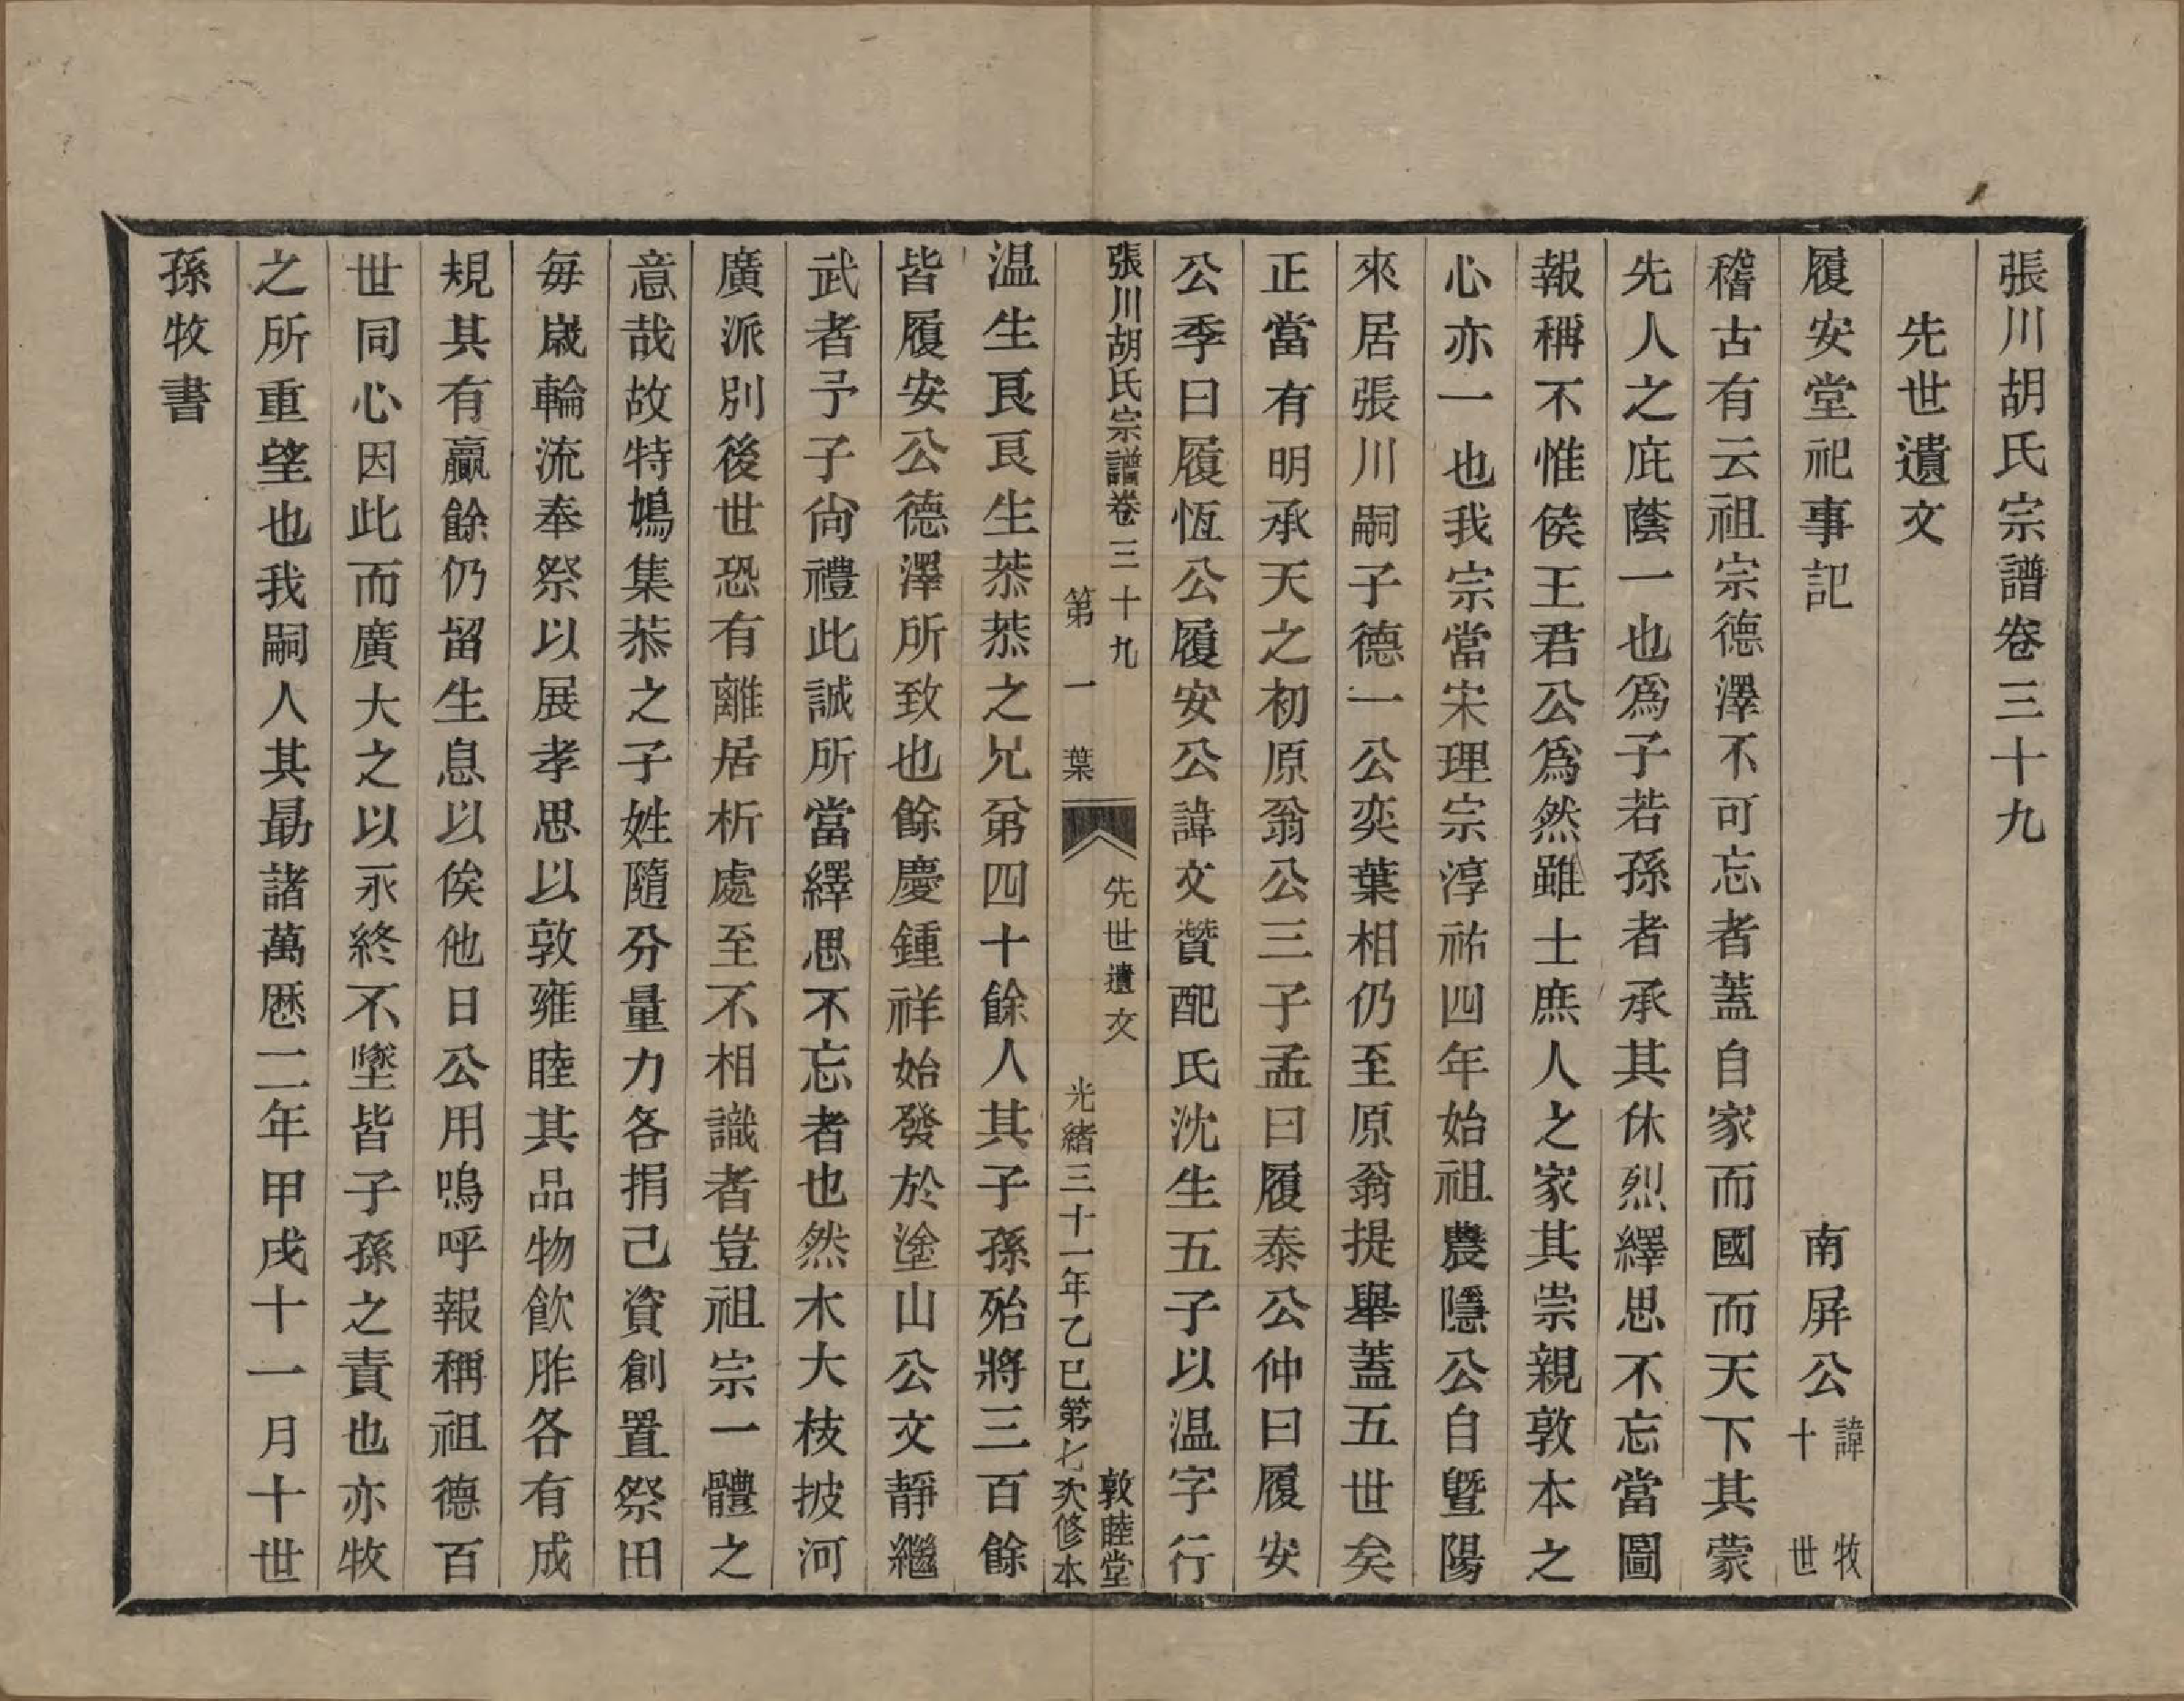 張川胡氏宗譜卷三十九
先世遺文
履安堂祀事記　南屏公諱牧十世
稽古有云祖宗德澤不可忘者蓋自家而國而天下其蒙
先人之庇蔭一也爲子若孫者承其休烈繹思不忘當圖
報稱不惟侯王君公爲然雖士庶人之家其崇親敦本之
心亦一也我宗當宋理宗淳祐四年始祖農隱公自曁陽
來居張川嗣子德一公奕葉相仍至原翁提舉蓋五世矣
正當有明承天之初原翁公三子孟曰履泰公仲曰履安
公季曰履恆公履安公諱文贊配氏沈生五子以温字行
張川胡氏宗譜卷三十九
第一葉
先世遺文
光緒三十一年乙巳第七次修本
敦睦堂
温生艮艮生恭恭之兄弟四十餘人其子孫殆將三百餘
皆履安公德澤所致也餘慶鍾祥始發於塗山公文靜繼
武者予子尙禮此誠所當繹思不忘者也然木大枝披河
廣派別後世恐有離居析處至不相識者豈祖宗一體之
意哉故特鳩集恭之子姓隨分量力各捐己資創置祭田
每歲輪流奉祭以展孝思以敦雍睦其品物飮胙各有成
規其有贏餘仍留生息以俟他日公用嗚呼報稱祖德百
世同心因此而廣大之以永終不墜皆子孫之責也亦牧
之所重望也我嗣人其勗諸萬厯二年甲戌十一月十世
孫牧書